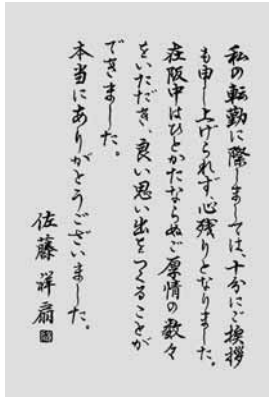 私の転勤に際しましては、十分にご挨拶
も申し上げられず、心残りとなりました。
在阪中はひとかたならぬご厚情の数々
をいただき、良い思い出をつくることが
できました。
本当にありがとうございました。
佐藤祥扇